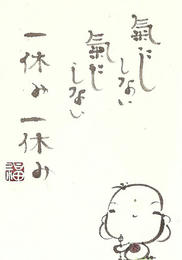 氣にし
しない
氣に
しない
一休み一休み
福